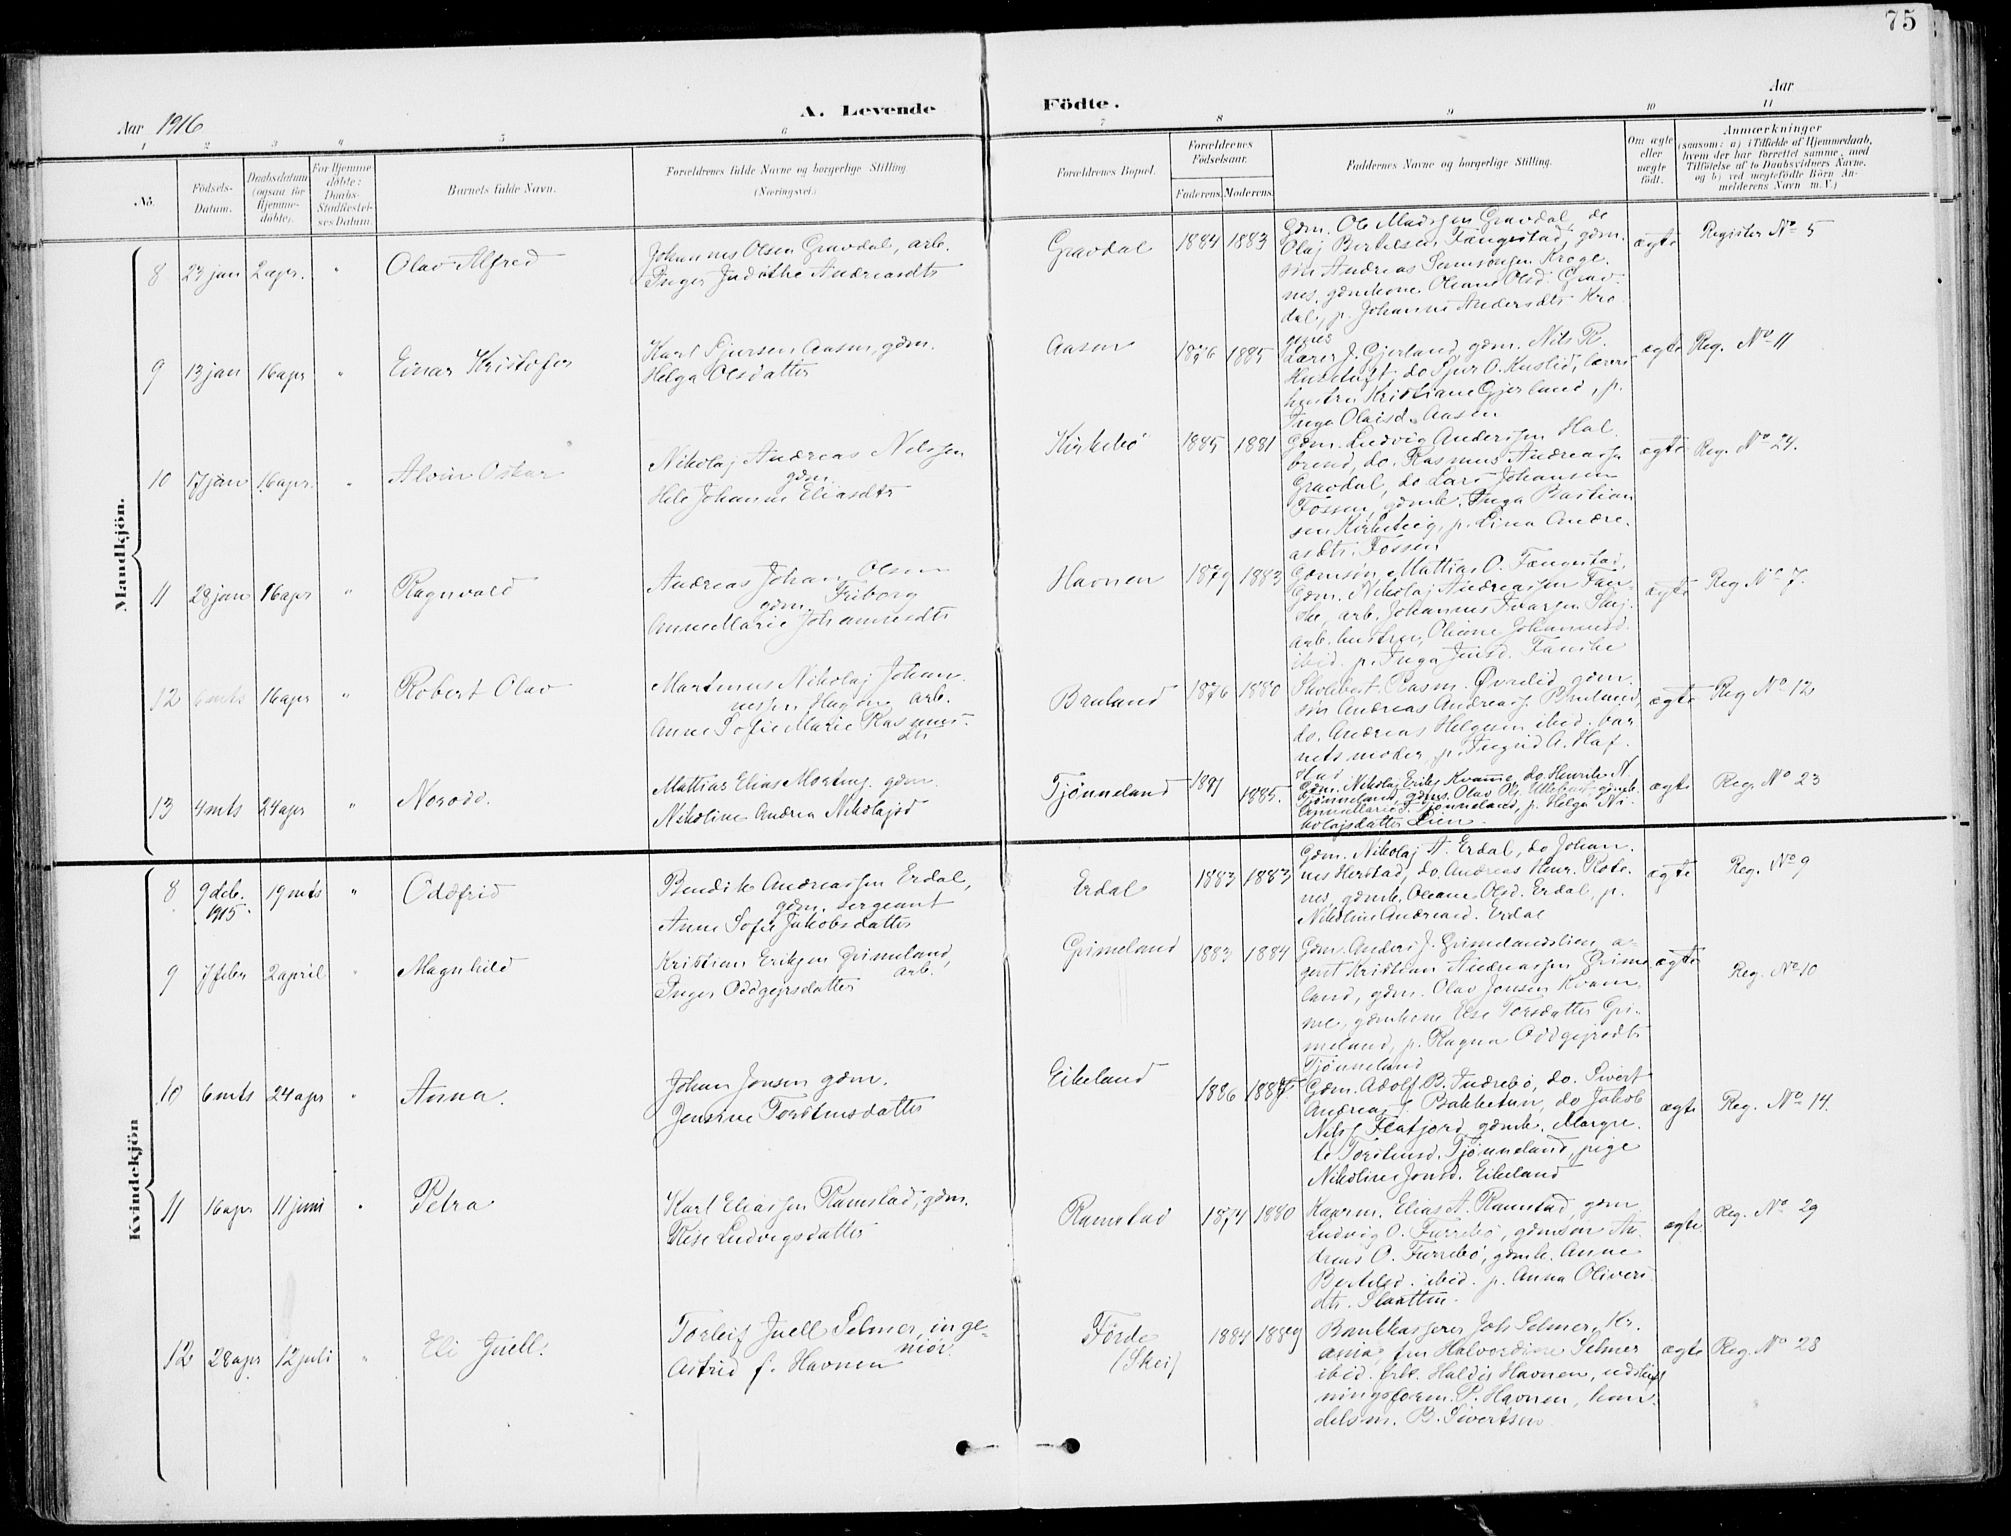 75
Aar 1916
A. Levende Födte.
Aar
1 2 3 4 5 6 7 8 9 10 11
No.
Födsels-Datum.
Daabsdatum (ogsaa for Hjemmedöbte).
For Hjemmedöbte: Daabs-Stadfæstelses Datum
Barnets fulde Navn.
Forældrenes fulde Navne og borgerlige Stilling (Næringsvei.)
Forældrenes Bopæl.
Forældrenes Födselsaar.
Faderens. Moderens.
Faddernes Navne og borgerlige Stilling.
Om ægte eller uægte født.
Anmærkninger
(saasom: a) i Tilfælde af Hjemmedaab, hvem der har forrettet samme, med Tilföielse af to Daabsvidners Navne. og b) ved uægtefödte Börn Anmelderens Navn m. V.)
Mandkjön.
8 23 jan 2 apr. " Olav Alfred
Johannes Olsen Gravdal, arb.
Inger Judithe Andreasdtr
Gravdal 1884 1883
Gdm. Ole Madssen Gravdal, do
Olaj Bertelsen Fængestad, gdm.
søn Andreas Samsonsen Kroge
nes, gdmkone Oleane Olsd. Grav
dal, p. Johanne Andersdtr Kro
genes
ægte Register No 5
9 13 jan 16 apr " Einar Kristofer
Karl Sjursen Aasen, gdm.
Helga Olsdatter
Aasen 1876 1885
Lærer J. Gjerland, gdm. Nils R.
Hustuft do Sjur O. Huslid, lærer
hustru Kristiane Gjerland, p.
Inga Olaisd. Aasen
ægte Reg. No 11
10 17 jan 16 apr. " Alvin Oskar
Nikolaj Andreas Nilssen
gdm.
Hele Johanne Eliasdtr
Kirkebø 1885 1881
Gdm. Ludvig Anderssen Hal
brend, do. Rasmus Andreassen
Gravdal, do Lars Johansen
Fossen, gdmk. Inga Bastian
sen Kirketeig, p. Lina Andre.
asdtr. Fossen
ægte Reg. No 24.
11 28 jan 16 apr " Ragnvald
Andreas Johan Olsen
gdm. Friborg
Anne Marie Johannesdtr
Havnen 1879 1883
Gdmsøn Mattias O. Fængestad,
Gdm. Nikolaj Andreassen Fan-
ske, arb. Johannes Ivarsen Skej.
arb. hustru, Oliane Johannesd.
ibid. p. Inga Jensd. Fanske
ægte Reg No 7.
12 6 mts 16 apr " Robert Olav
Martinus Nikolaj Johan
nessen Hagen arb.
Anne Sofie Marie Rasmus-
dtr
Bruland 1876 1880
Skolebest. Rasm. Øvrelid, gdm.
søn Andreas Andreass. Bruland,
do. Andreas Helgesen ibid. bar
nets moder, p. Ingrid A. Haf.
stad
ægte Reg No 12
13 4 mts 24 apr " Norodd.
Mattias Elias Mortens. gdm.
Nikoline Andrea Nikolajsd
Tjønneland 1871 1885.
Gdm. Nikolaj Eriks. Kvamme, do. Henrik A.
Tjønneland, gdms. Olav Ullebust gdmk.
Anne Marie S. Tjønneland, p. Helga Ni-
kolajsdatter Lien.
ægte Reg. No 23
Kvindekjön
8 9 deb. 1915. 19 mts " Oddfrid
Bendik Andreassen Erdal,
gdm. sergeant
Anne Sofie Jakobsdatter
Erdal 1883 1883
Gdm. Nikolaj A. Erdal, do Johan.
nes Herstad, do. Andreas Henr. Rote-
nes, gdmk. Oleane Olsd. Erdal, p.
Nikoline Andreasd. Erdal
ægte Reg. No 9
9 7 febr 2 april " Magnhild
Kristian Eriksen Grimeland,
arb.
Inger Oddgejrsdatter
Grimeland 1883 1884
Gdm. Anders J. Grimelandslien, a-
gent Kristian Andreassen Grime
land, gdm. Olav Jonsen Kvam
me, gdmkone Else Torsdatter Gri-
meland, p. Ragna Oddgejrsdtr
Tjønneland
ægte Reg. No 10
10 6 mts 24 apr " Anna.
Johan Jonsen gdm.
Jensine Torstensdatter
Eikeland 1886
Gdm. Adolf B. Indrebø, do. Sivert
Andreas J. Bakketun, do Jakob
Nils. Flatjord gdmk. Margre.
te Torstensd. Tjønneland, pige
Nikoline Jonsd. Eikeland
ægte Reg. No 14.
11 16 apr 11 juni " Petra
Karl Eliassen Ramstad, gdm.
Else Ludvigsdatter
Ramstad 1874 1880
Kaarm. Elias A. Ramstad, gdm
Ludvig O. Furrebø, gdmsøn An
dreas O. Furrebø, gdmk. Anne
Bertelsd. ibid. p. Anna Olivers
dtr. Slaatten.
ægte Reg. No 29
12 28 apr 12 juli " Eli Juell.
Torleif Juell Selmer, inge-
niør.
Astrid f. Havnen
Førde
(Skei)
1884 1889
Bankkasserer Joh Selmer, Kr.
ania, fru Halvordine Selmer
ibid. frk. Haldis Havnen, udskift
ningsform. P. Havnen, han
delsm. B. Sivertsen.
ægte Reg. No 28